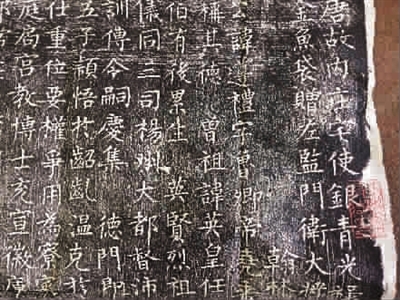 唐故內莊宅使銀青光祿
金魚袋贈左監門衛大將
翰林
公諱遵禮字魯卿帝堯
稱其德曾祖諱英皇任
伯有後累生英賢烈祖
儀同三司揚州大都督沛
訓傳令嗣慶集德門即
五子穎悟於齠齔溫克於
仕重位要權爭用為寮
庭局宮教博士亥宣徽庫